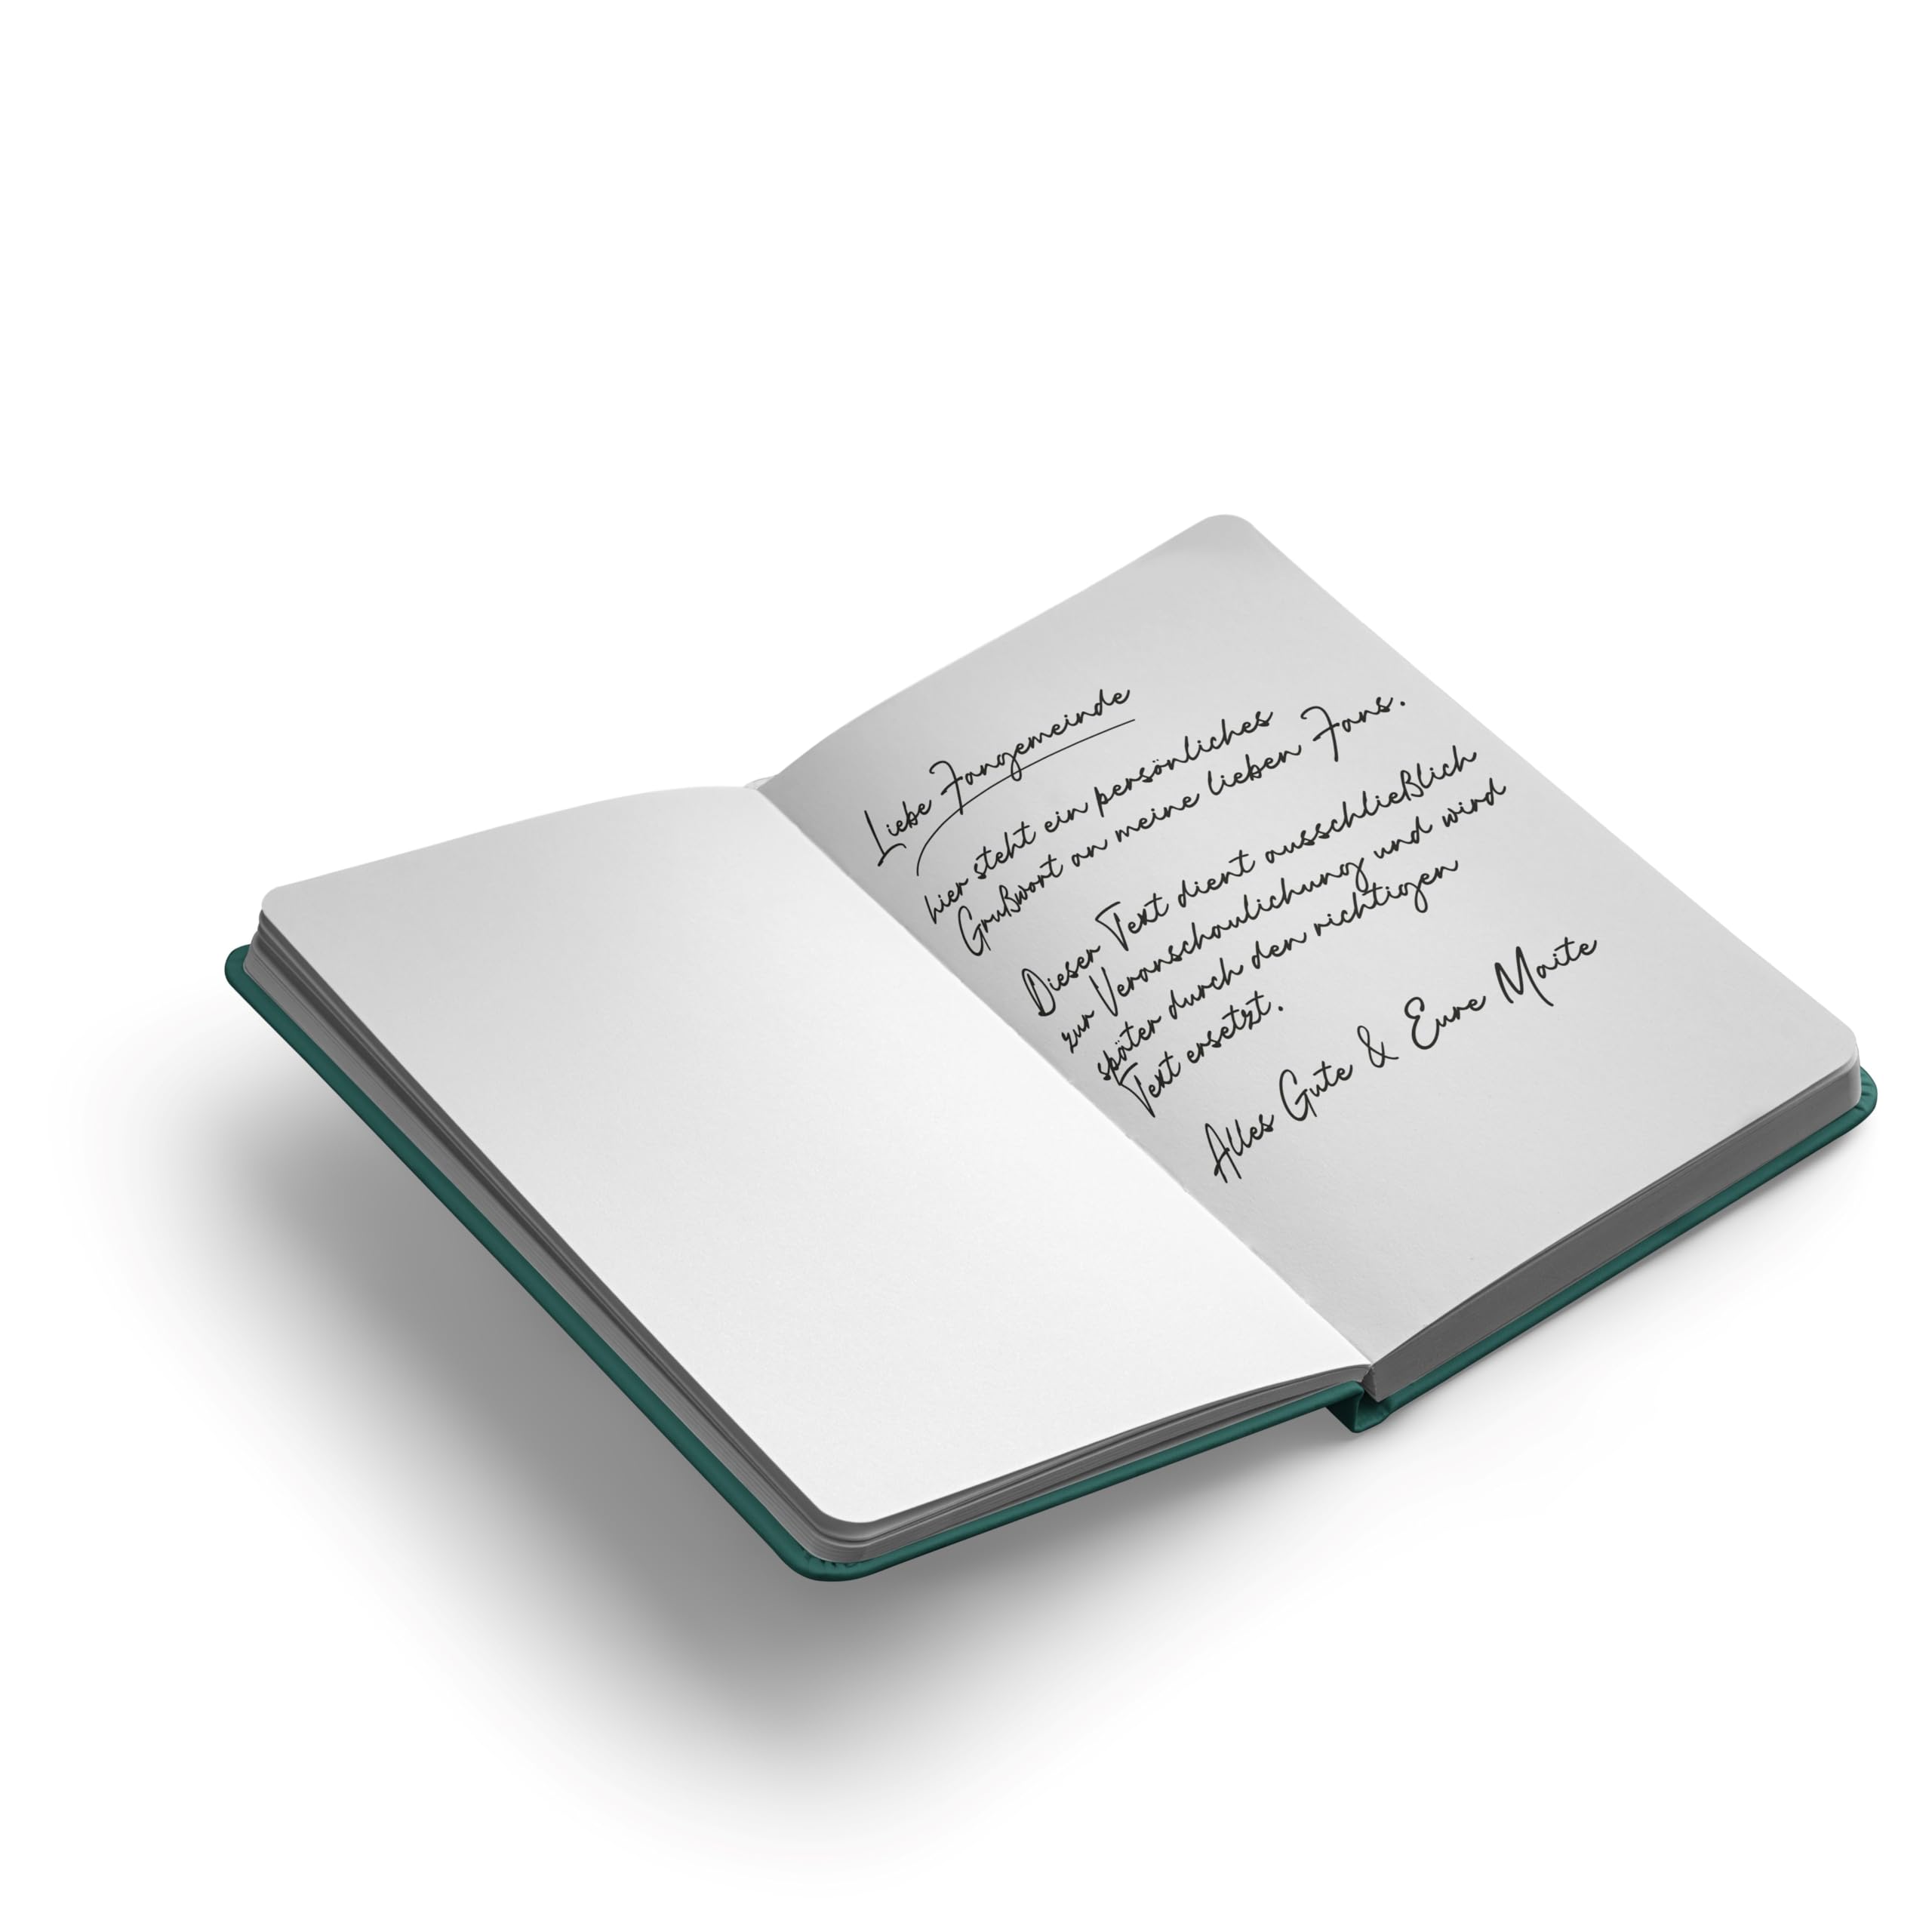 Liebe Fangemeinde
hier steht ein persönliches
Grußwort an meine lieben Fans.
Dieser Text dient ausschließlich
zur Veranschaulichung und wird
später durch den richtigen
Text ersetzt.
Alles Gute & Eure Maite